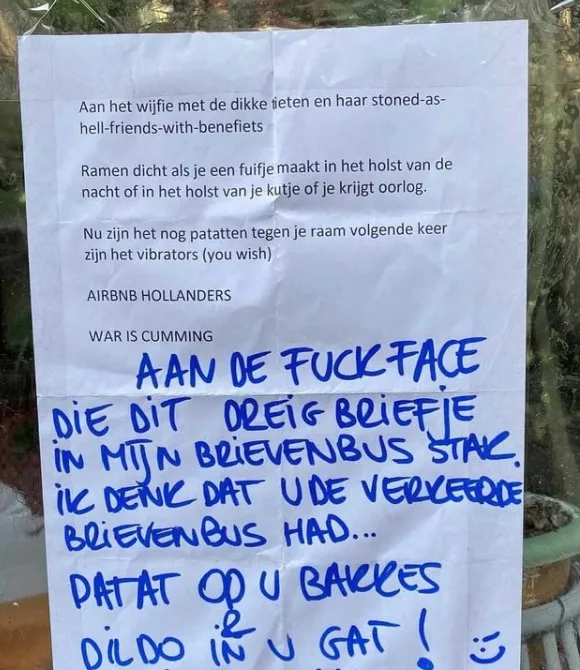 Aan het wijfie met de dikke tieten en haar stoned-as-
hell-friends-with-benefiets
Ramen dicht als je een fuifje maakt in het holst van de
nacht of in het holst van je kutje of je krijgt oorlog.
Nu zijn het nog patatten tegen je raam volgende keer
zijn het vibrators (you wish)
AIRBNB HOLLANDERS
WAR IS CUMMING
AAN DE FUCKFACE
DIE DIT DREIGBRIEFJE
IN MIJN BRIEVENBUS STAK.
IK DENK DAT U DE VERKEERDE
BRIEVENBUS HAD...
PATAT OP U BAKKES
&
DILDO IN U GAT! :)